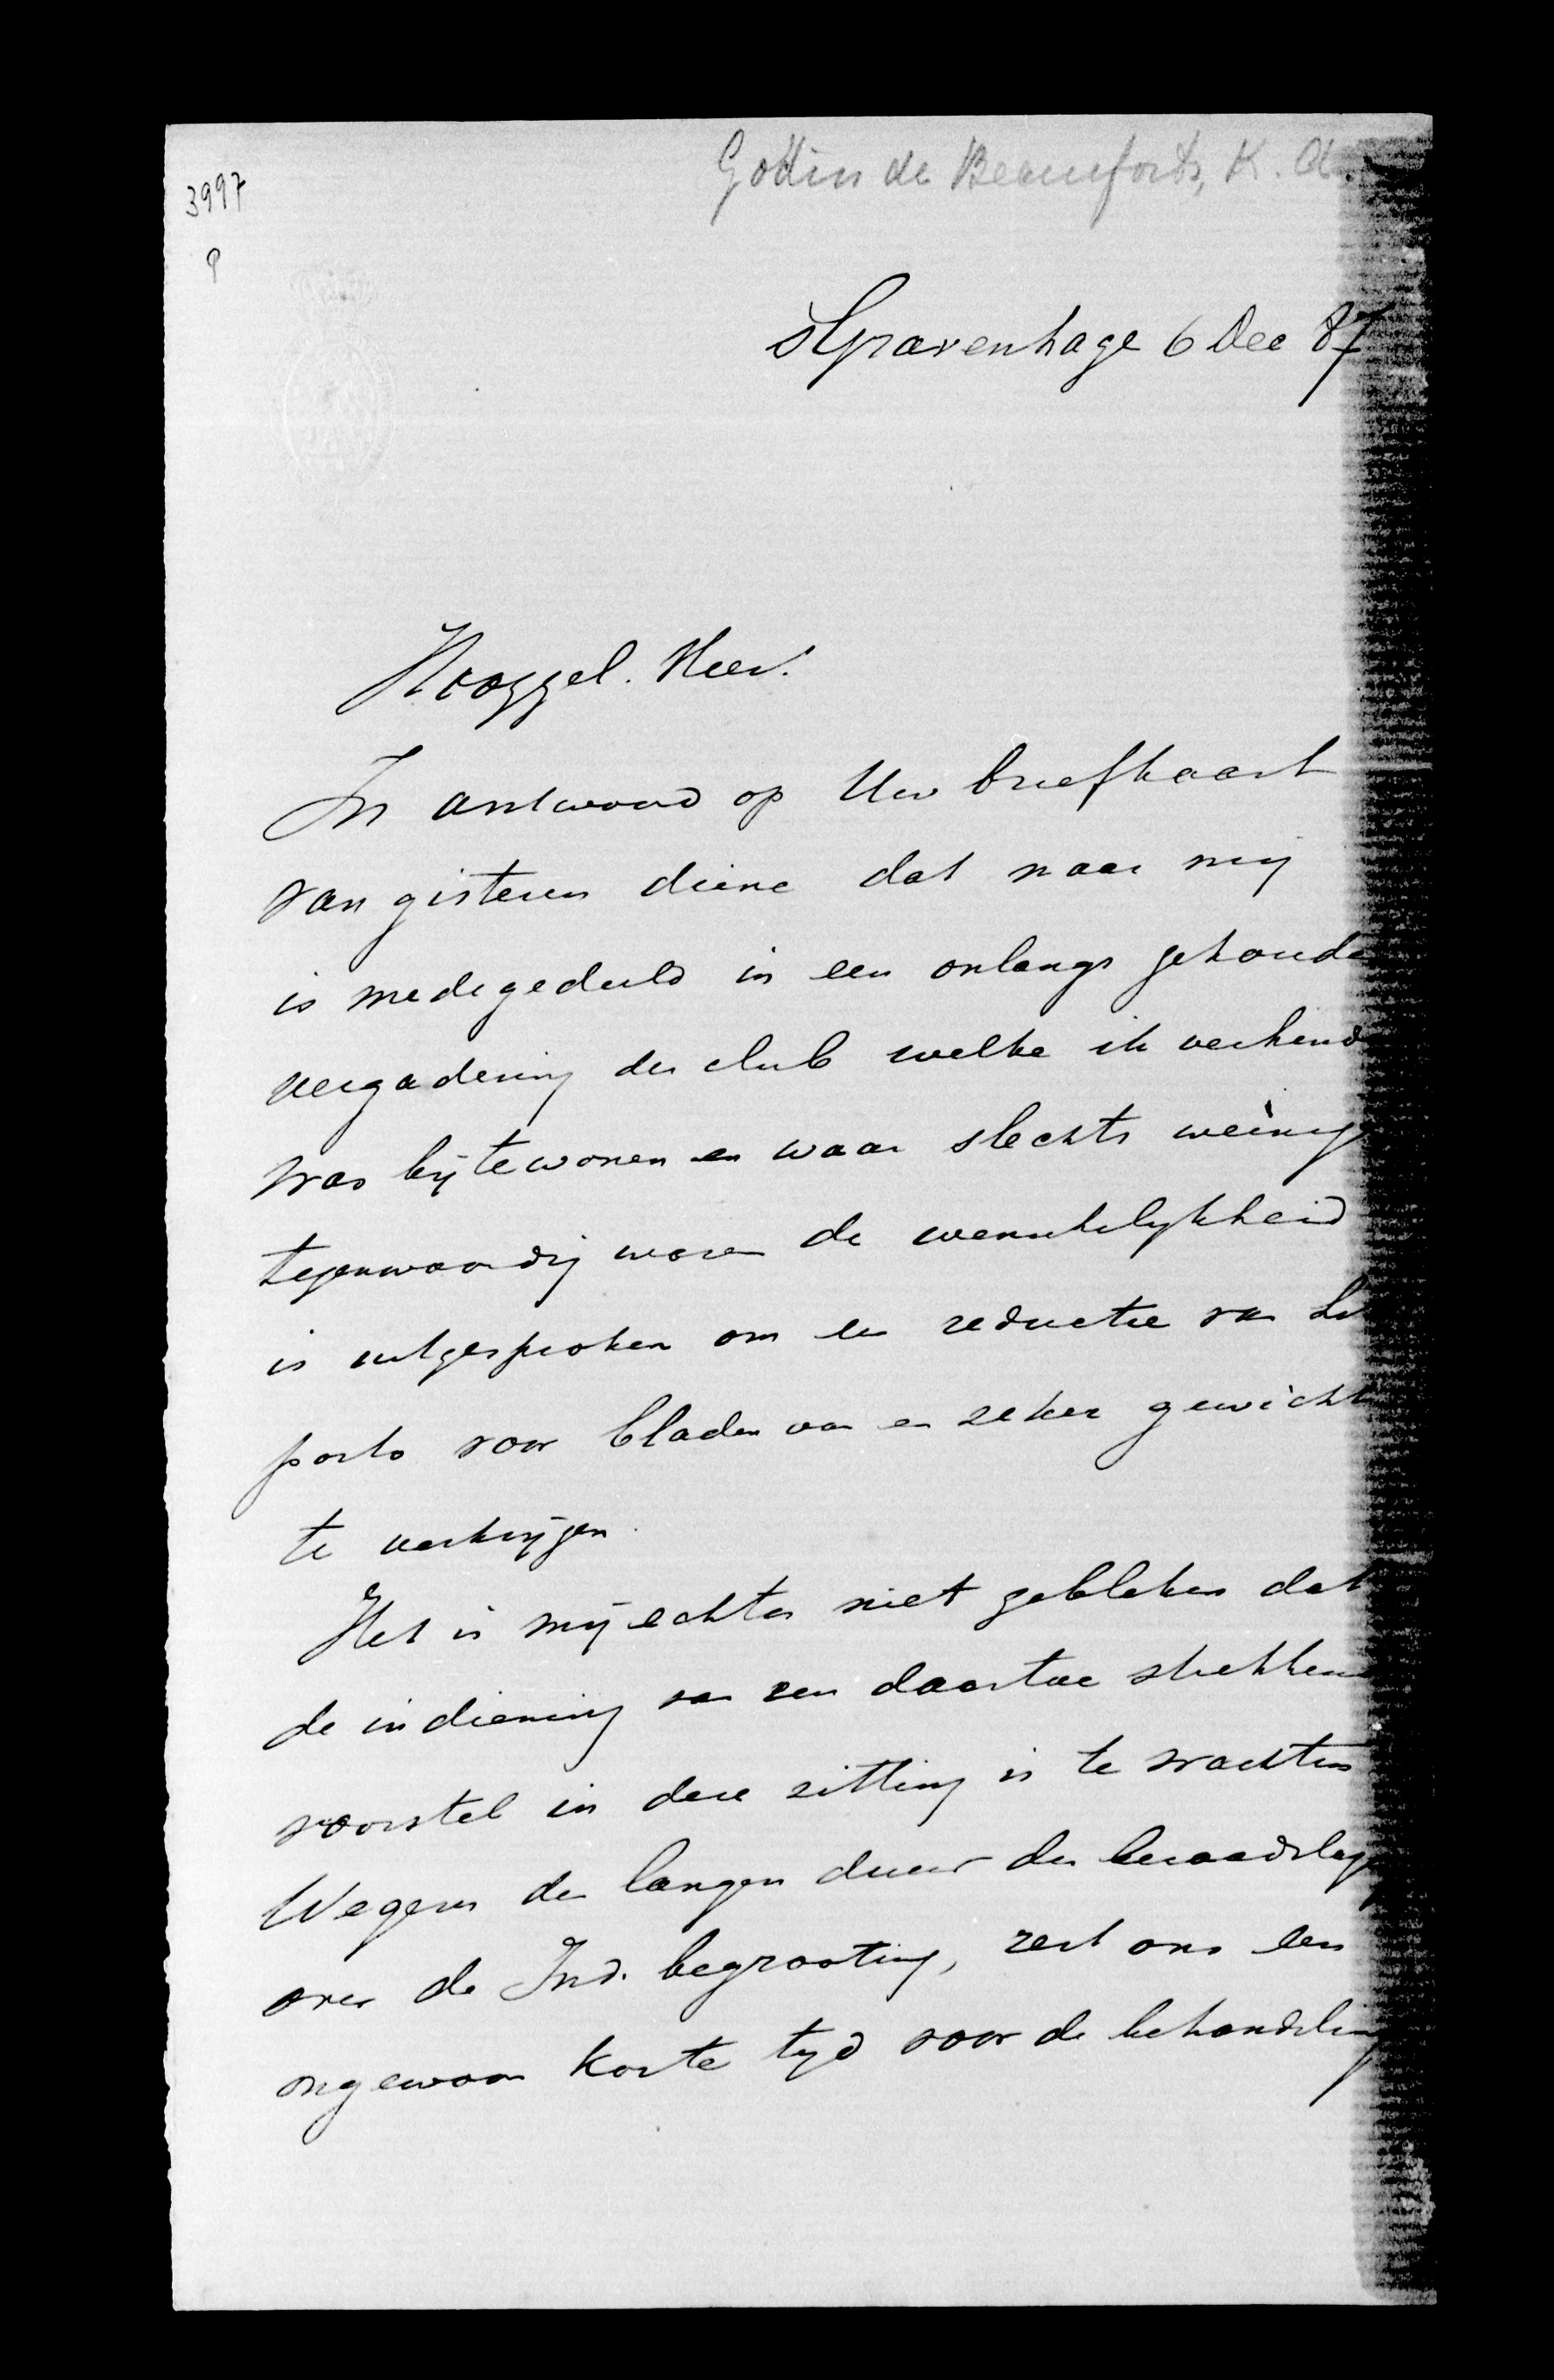 3997
Godin de Beaufort, K. A.
sGravenhage 6 Dec 87
Hooggel. Heer.
In antwoord op Uw briefkaart
van gisteren diene dat naar mij
is medegedeeld in een onlangs gehoude
vergadering der club welke ik verhinde
was bij te wonen en waar slechts weinig
tegenwoordig waren de wenschelijkheid
is uitgesproken om een reductie van
porto voor bladen van een zeker gewicht
te verkrijgen.
Het is mij echter niet gebleken dat
de indiening van een daartoe strekken
voorstel in deze zitting is te wachten
Wegens den langen duur der beraadslag
over de Ind. begrooting, rest ons een
ongewoon korte tijd voor de behandeling